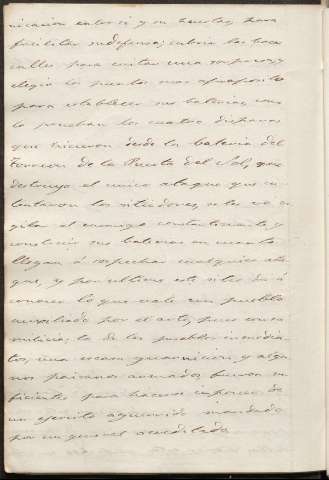 nicacion entre si y su huerta, para
facilitar su defensa; cubrio las boca
calles para contar una sorpresa, y
eligio los puntos mas aproposito
para establecer sus baterias, como
lo prueban los cuatro disparos
que hicieron desde la bateria del
Torreon de la Puerta del Sol, que
destruyo el unico ataque que in-
tentaron los sitiadores, se les vé vi-
gilar al enemigo constantemente, y
construir sus baterias en cuanto
llegan á sospechar cualquier ata-
que, y por ultimo este sitio dá á
conocer lo que vale un pueblo
auxiliado por el arte, pues con su
milicia, la de los pueblos inmedia-
tos, una escasa guarnicion, y algu-
nos paisanos armados, fueron su-
ficientes para hacerse imponer de
un ejercito aguerrido mandado
por un general acreditado